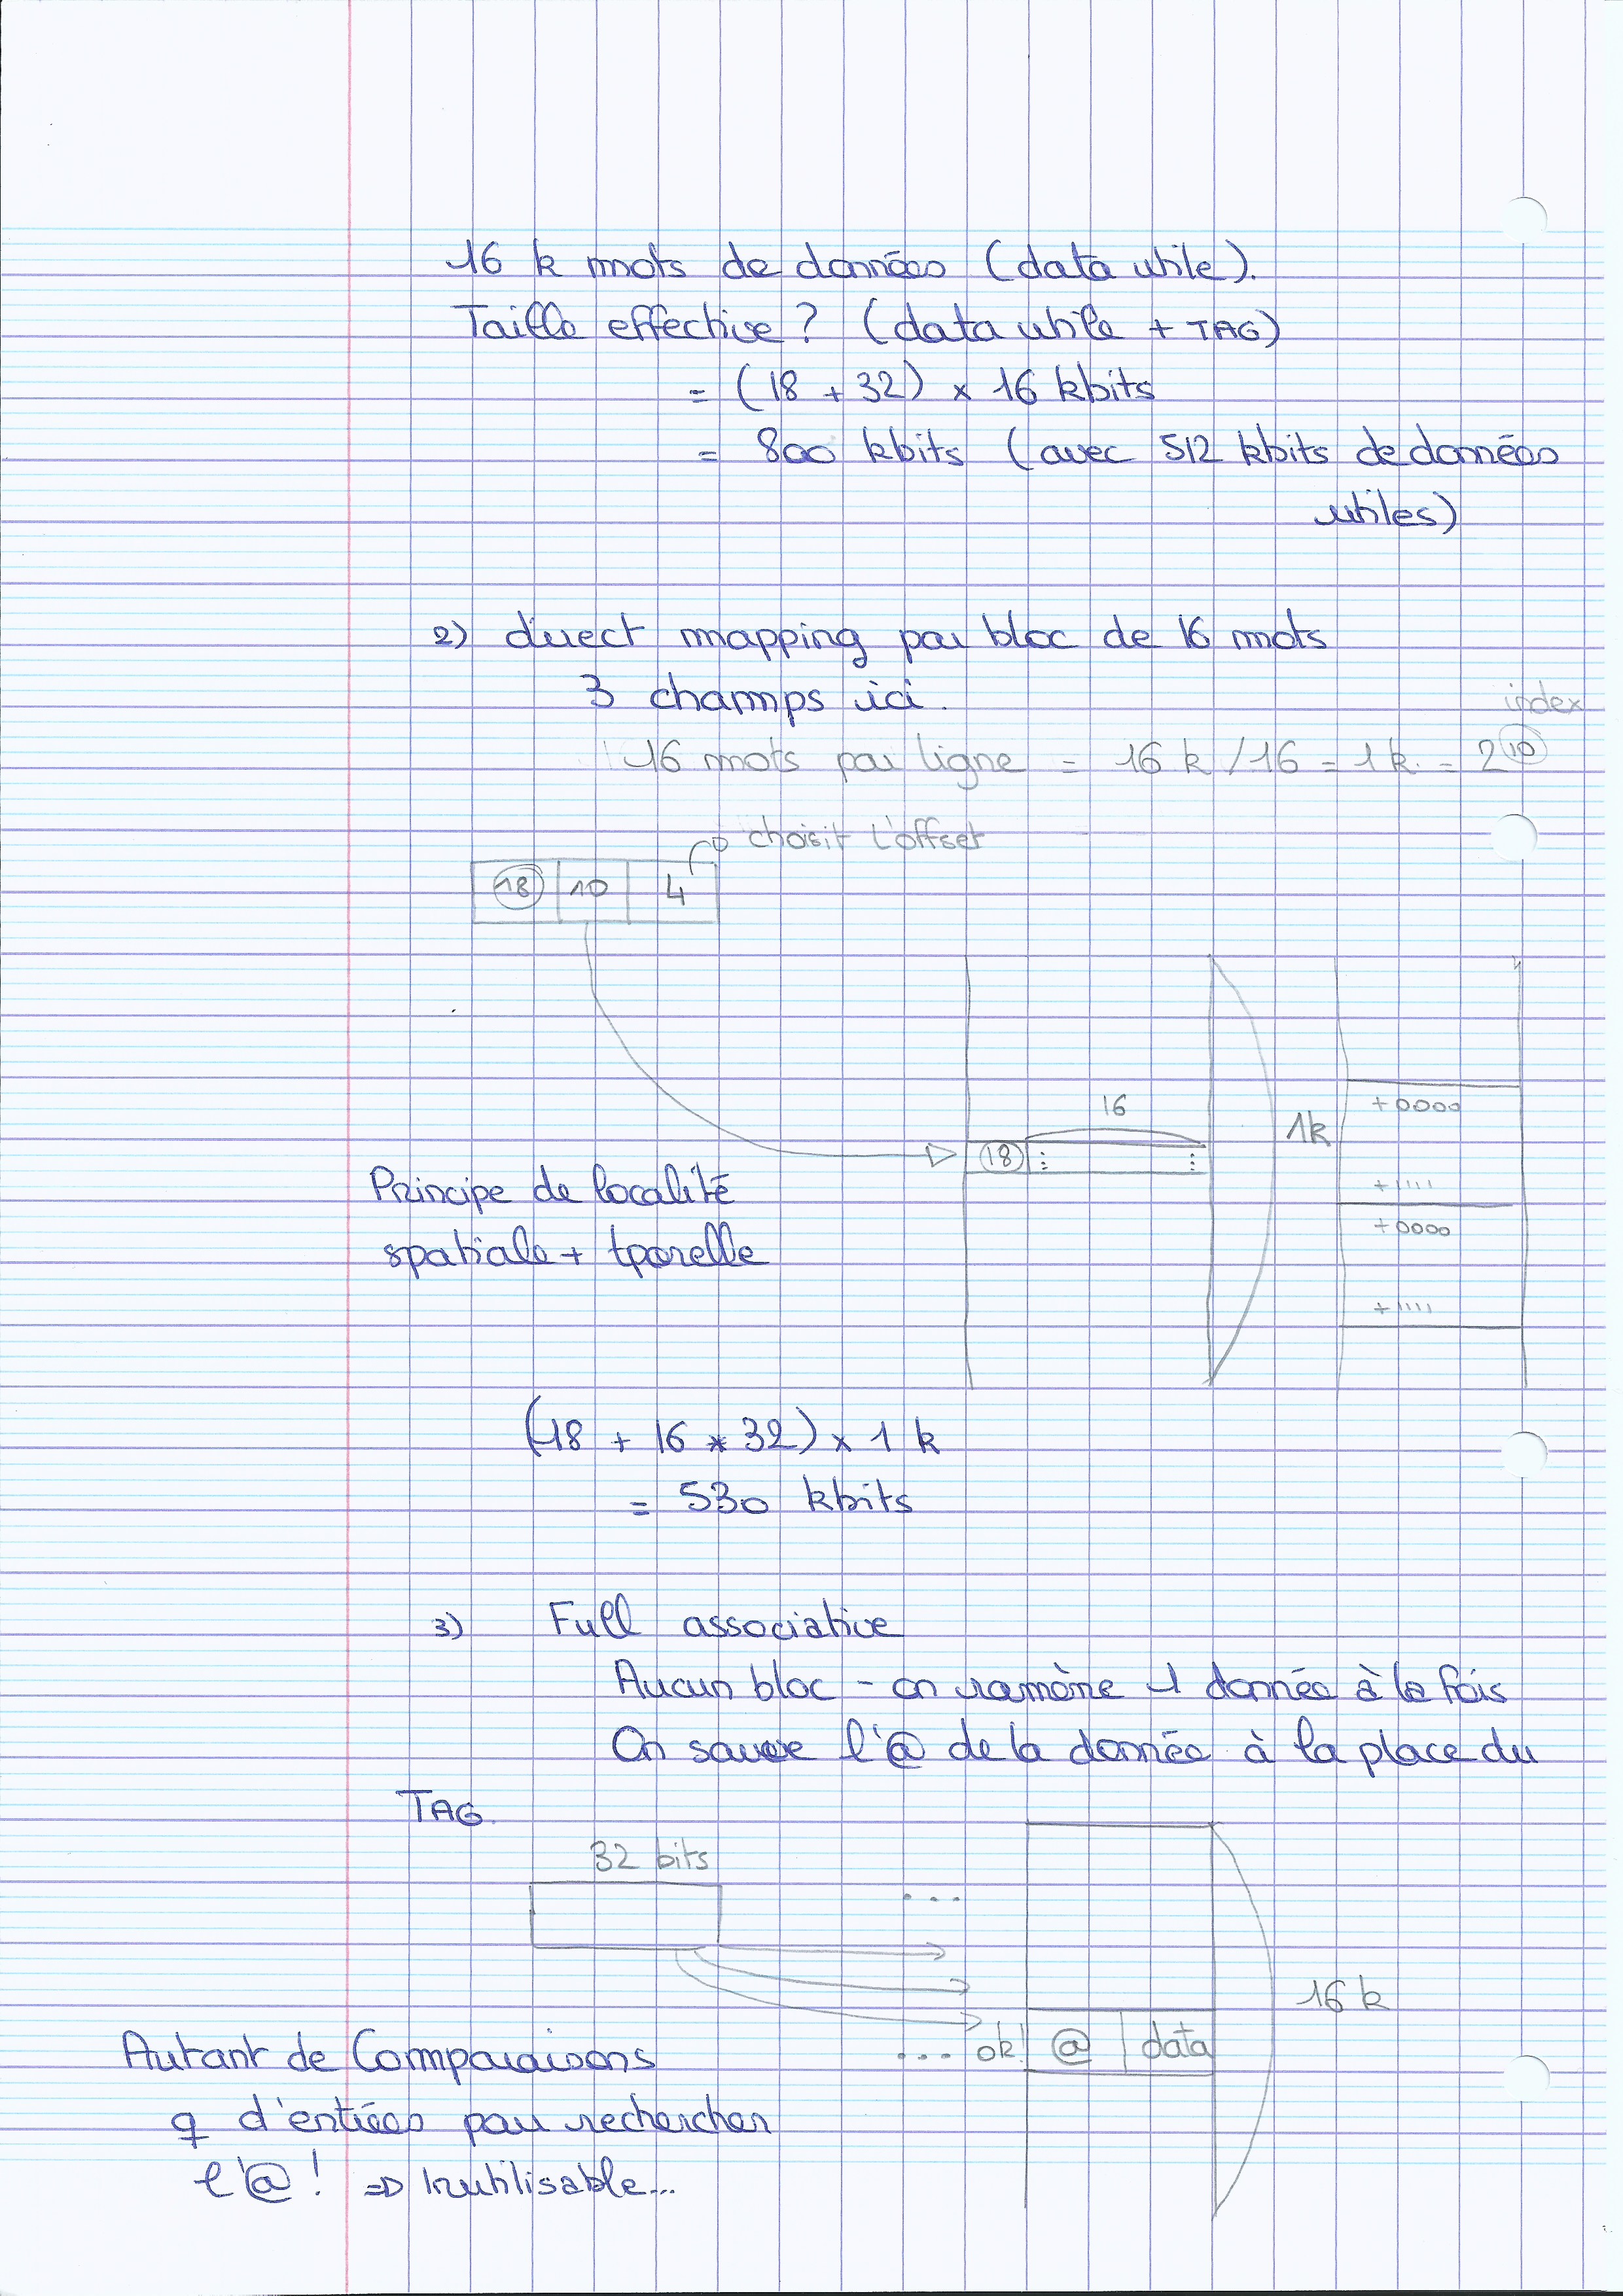 16 k mots de données (data utile).
Taille effective ? (data utile + TAG)
= (18 + 32) × 16 kbits
= 800 kbits (avec 512 kbits de données
utiles)
2) direct mapping par bloc de 16 mots
3 champs ici.
index
16 mots par ligne = 16 k / 16 = 1 k = 2^10
choisit l'offset
18 | 10 | 4
16
18
1k
+0000
+1111
+0000
+1111
Principe de localité
spatiale + tporelle
(18 + 16 * 32) × 1 k
= 530 kbits
3) Full associative
Aucun bloc - on ramène 1 donnée à la fois
On sauve l'@ de la donnée à la place du
TAG.
32 bits
...
16 k
... ok! @ | data
Autant de Comparaisons
q d'entrées pour rechercher
l'@ ! => Inutilisable...